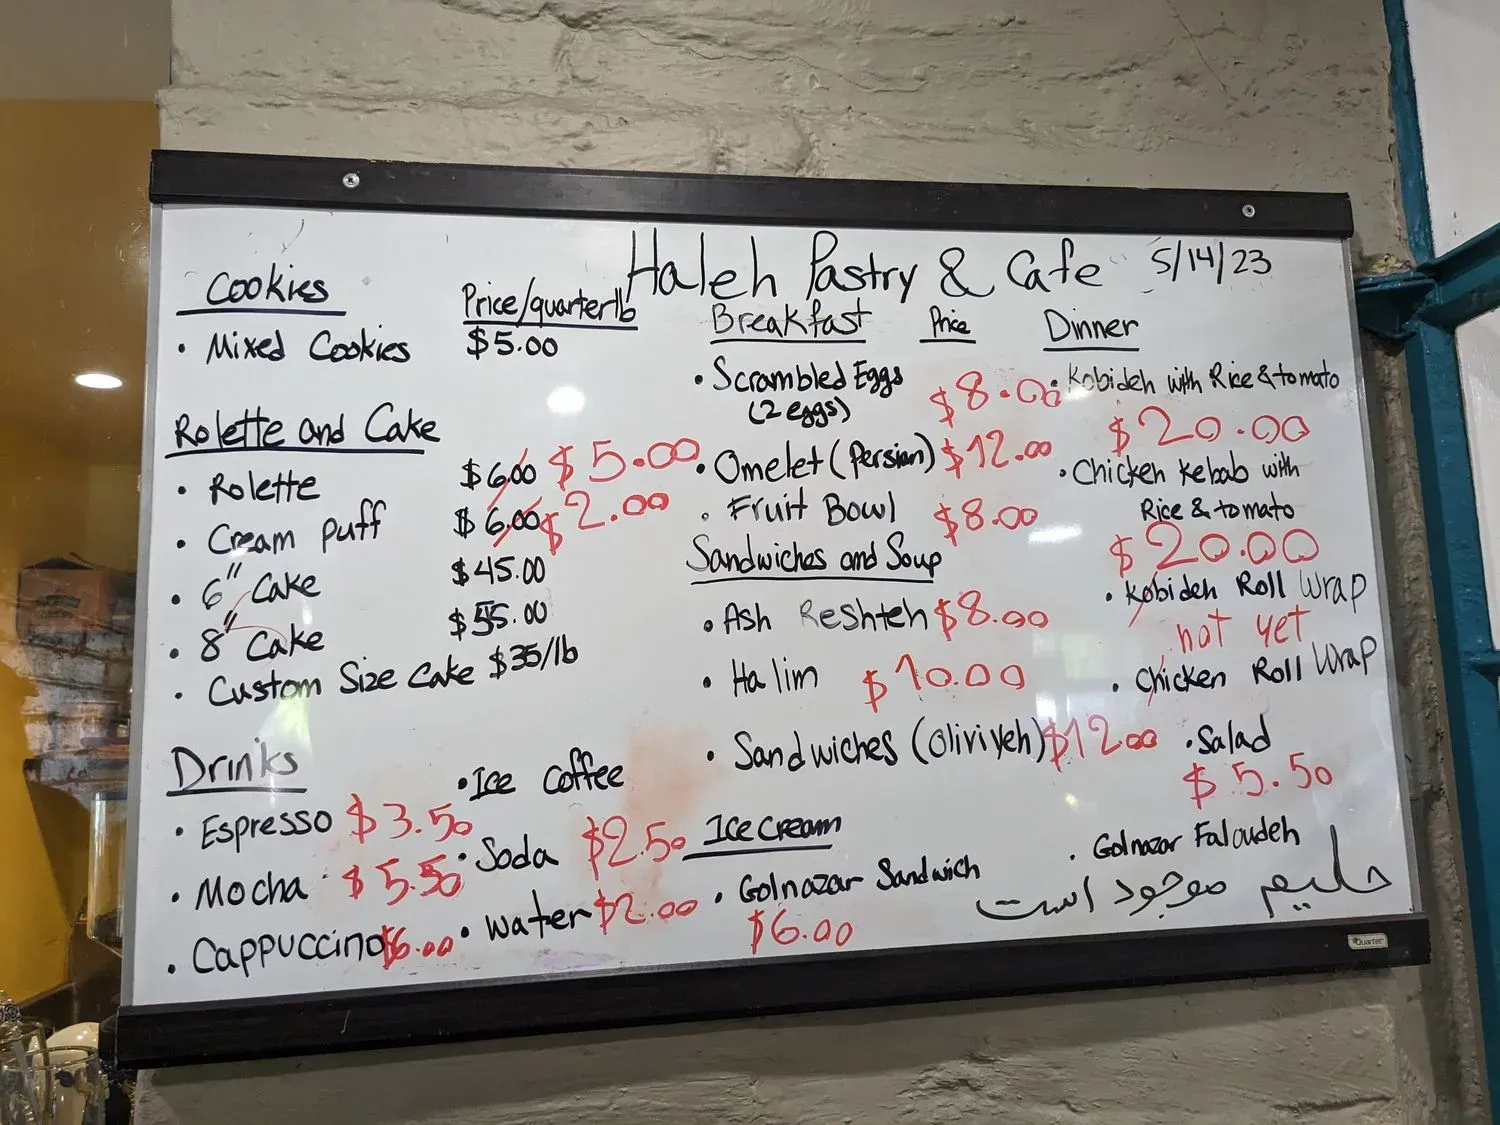 Haleh Pastry & Cafe 5/14/23
Cookies Price/quarter lb
• Mixed Cookies $5.00
Rolette and Cake
• Rolette $6.00 $5.00
• Cream Puff $6.00 $2.00
• 6" Cake $45.00
• 8" Cake $55.00
• Custom Size Cake $35/lb
Drinks
• Espresso $3.50
• Mocha $5.50
• Cappuccino $6.00
• Ice Coffee
• Soda $2.50
• Water $2.00
Breakfast Price
• Scrambled Eggs $8.00
(2 eggs)
• Omelet (Persian) $12.00
• Fruit Bowl $8.00
Sandwiches and Soup
• Ash Reshteh $8.00
• Halim $10.00
• Sandwiches (Oliviyeh) $12.00
Ice Cream
• Golnazar Sandwich
$6.00
• Golnazar Faloudeh
Dinner
• Kobideh with Rice & tomato
$20.00
• Chicken Kebab with
Rice & tomato
$20.00
• Kobideh Roll Wrap
not yet
• Chicken Roll Wrap
• Salad
$5.50
حلیم موجود است
Quartet